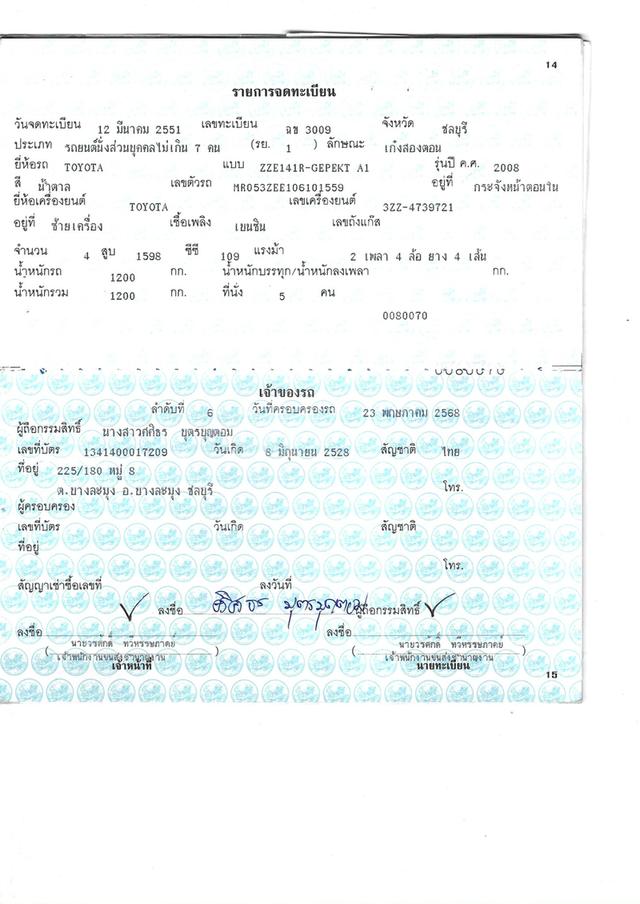 14
รายการจดทะเบียน
วันจดทะเบียน 12 มีนาคม 2551 เลขทะเบียน ฉข 3009 จังหวัด ชลบุรี
ประเภท รถยนต์นั่งส่วนบุคคลไม่เกิน 7 คน (รย. 1 ) ลักษณะ เก๋งสองตอน
ยี่ห้อรถ TOYOTA แบบ ZZE141R-GEPEKT A1 รุ่นปี ค.ศ. 2008
สี น้ำตาล เลขตัวรถ MR053ZEE106101559 อยู่ที่ กระจังหน้าตอนใน
ยี่ห้อเครื่องยนต์ TOYOTA เลขเครื่องยนต์ 3ZZ-4739721
อยู่ที่ ซ้ายเครื่อง เชื้อเพลิง เบนซิน เลขถังแก๊ส
จำนวน 4 สูบ 1598 ซีซี 109 แรงม้า 2 เพลา 4 ล้อ ยาง 4 เส้น
น้ำหนักรถ 1200 กก. น้ำหนักบรรทุก/น้ำหนักลงเพลา กก.
น้ำหนักรวม 1200 กก. ที่นั่ง 5 คน
0080070
0080070
เจ้าของรถ
ลำดับที่ 6 วันที่ครอบครองรถ 23 พฤษภาคม 2568
ผู้ถือกรรมสิทธิ์ นางสาวศศิธร บุตรบุญตอม
เลขที่บัตร 1341400017209 วันเกิด 8 มิถุนายน 2528 สัญชาติ ไทย
ที่อยู่ 225/180 หมู่ 8
ต.บางละมุง อ.บางละมุง ชลบุรี โทร.
ผู้ครอบครอง
เลขที่บัตร วันเกิด สัญชาติ
ที่อยู่
โทร.
สัญญาเช่าซื้อเลขที่ ลงวันที่
ลงชื่อ ศศิธร ผู้ถือกรรมสิทธิ์
ลงชื่อ ลงชื่อ
( นายวรศักดิ์ ทวีหรรษภาคย์ ) ( นายวรศักดิ์ ทวีหรรษภาคย์ )
เจ้าพนักงานขนส่งชำนาญงาน เจ้าพนักงานขนส่งชำนาญงาน
เจ้าหน้าที่ นายทะเบียน
15